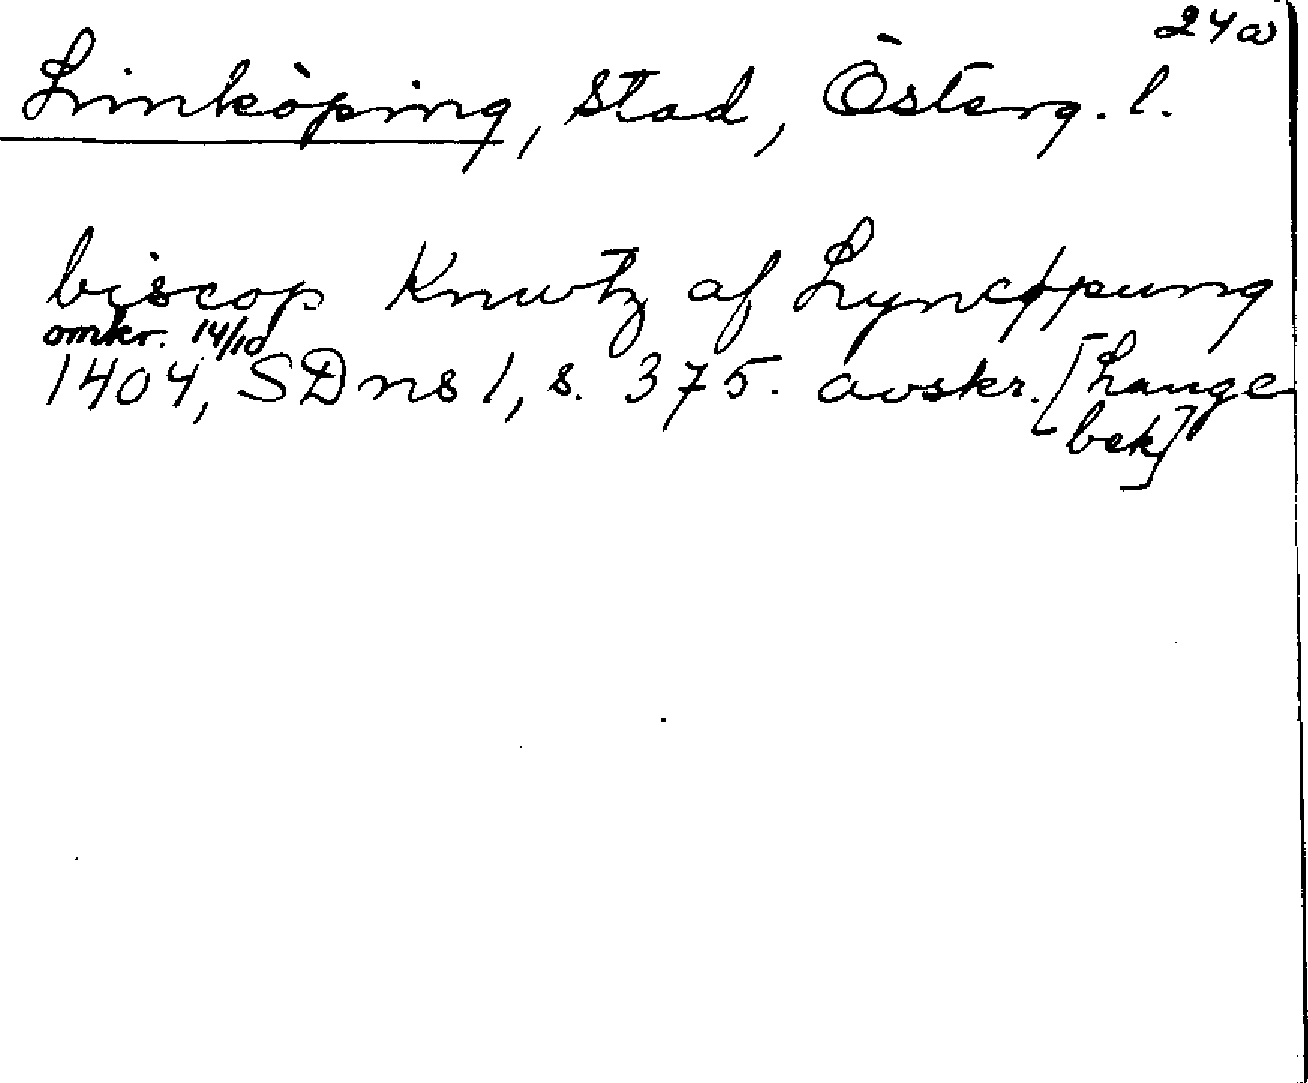 24a
Linköping, stad, Österg. l.
biscop Knutz af Lyncøpung
omkr. 14/10
1404, SD ns 1, s. 375. avskr. [Lange-
bek]